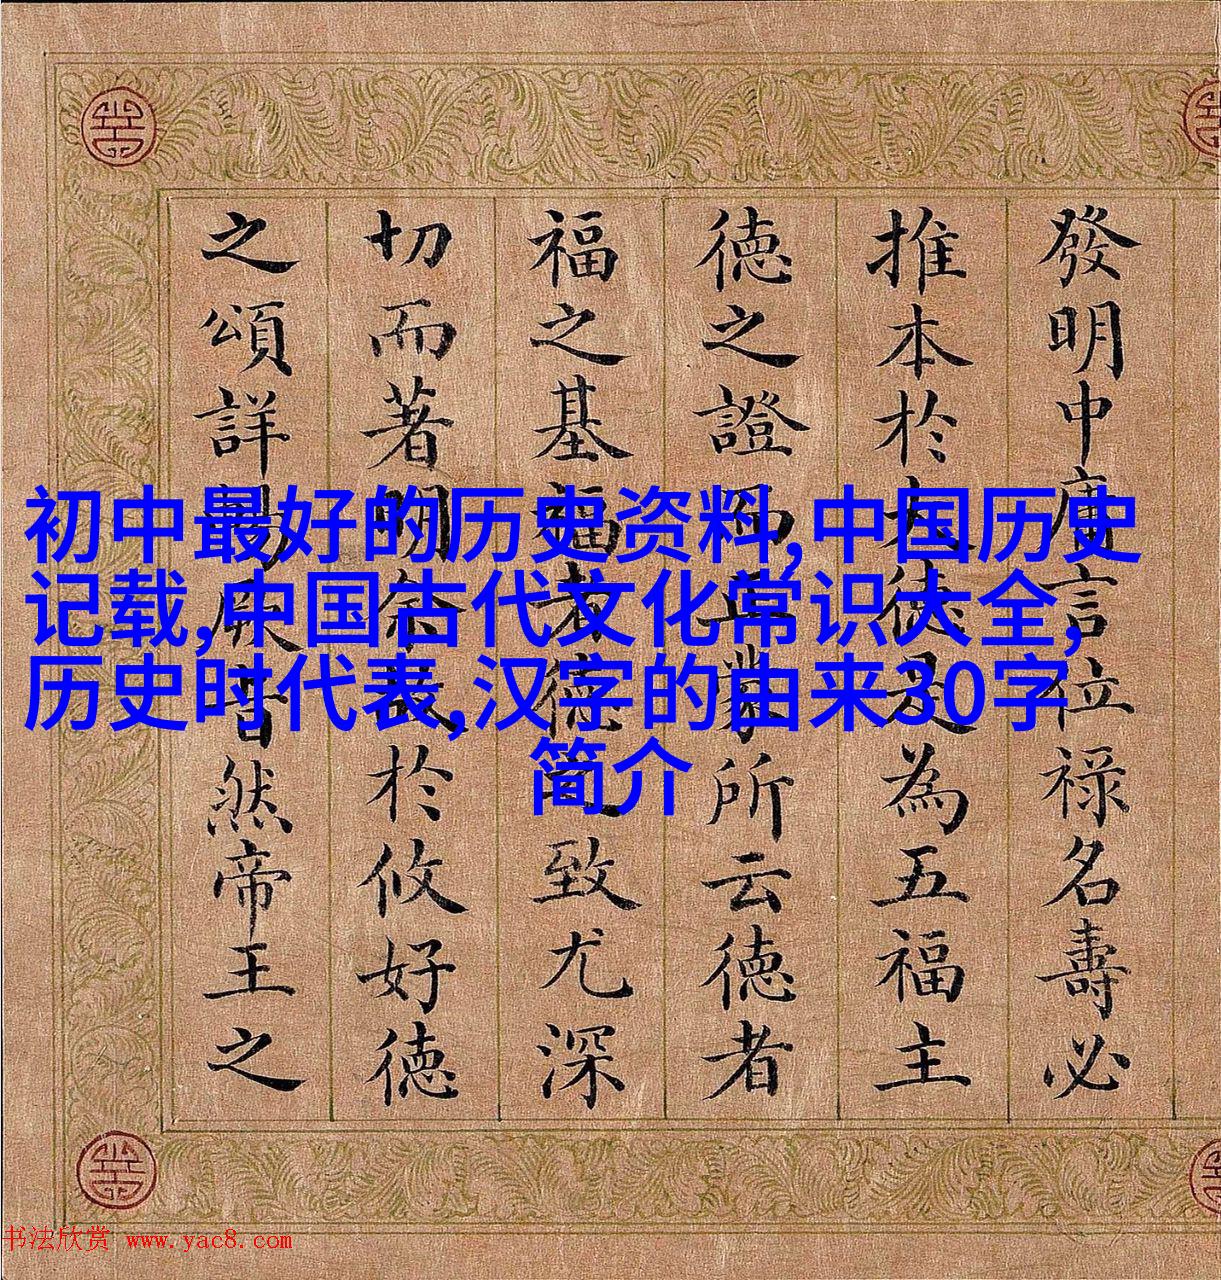 初中最好的历史资料,中国历史
记载,中国古代文化常识大全,
历史时代表,汉字的由来30字
简介
發明中庸言位祿名壽必
推本於大德是為五福主
德之證而所云德者
福之基福者德之致尤深
切而著明余於攸好德
之頌詳厥然帝王之
书法欣赏 www.yac8.com